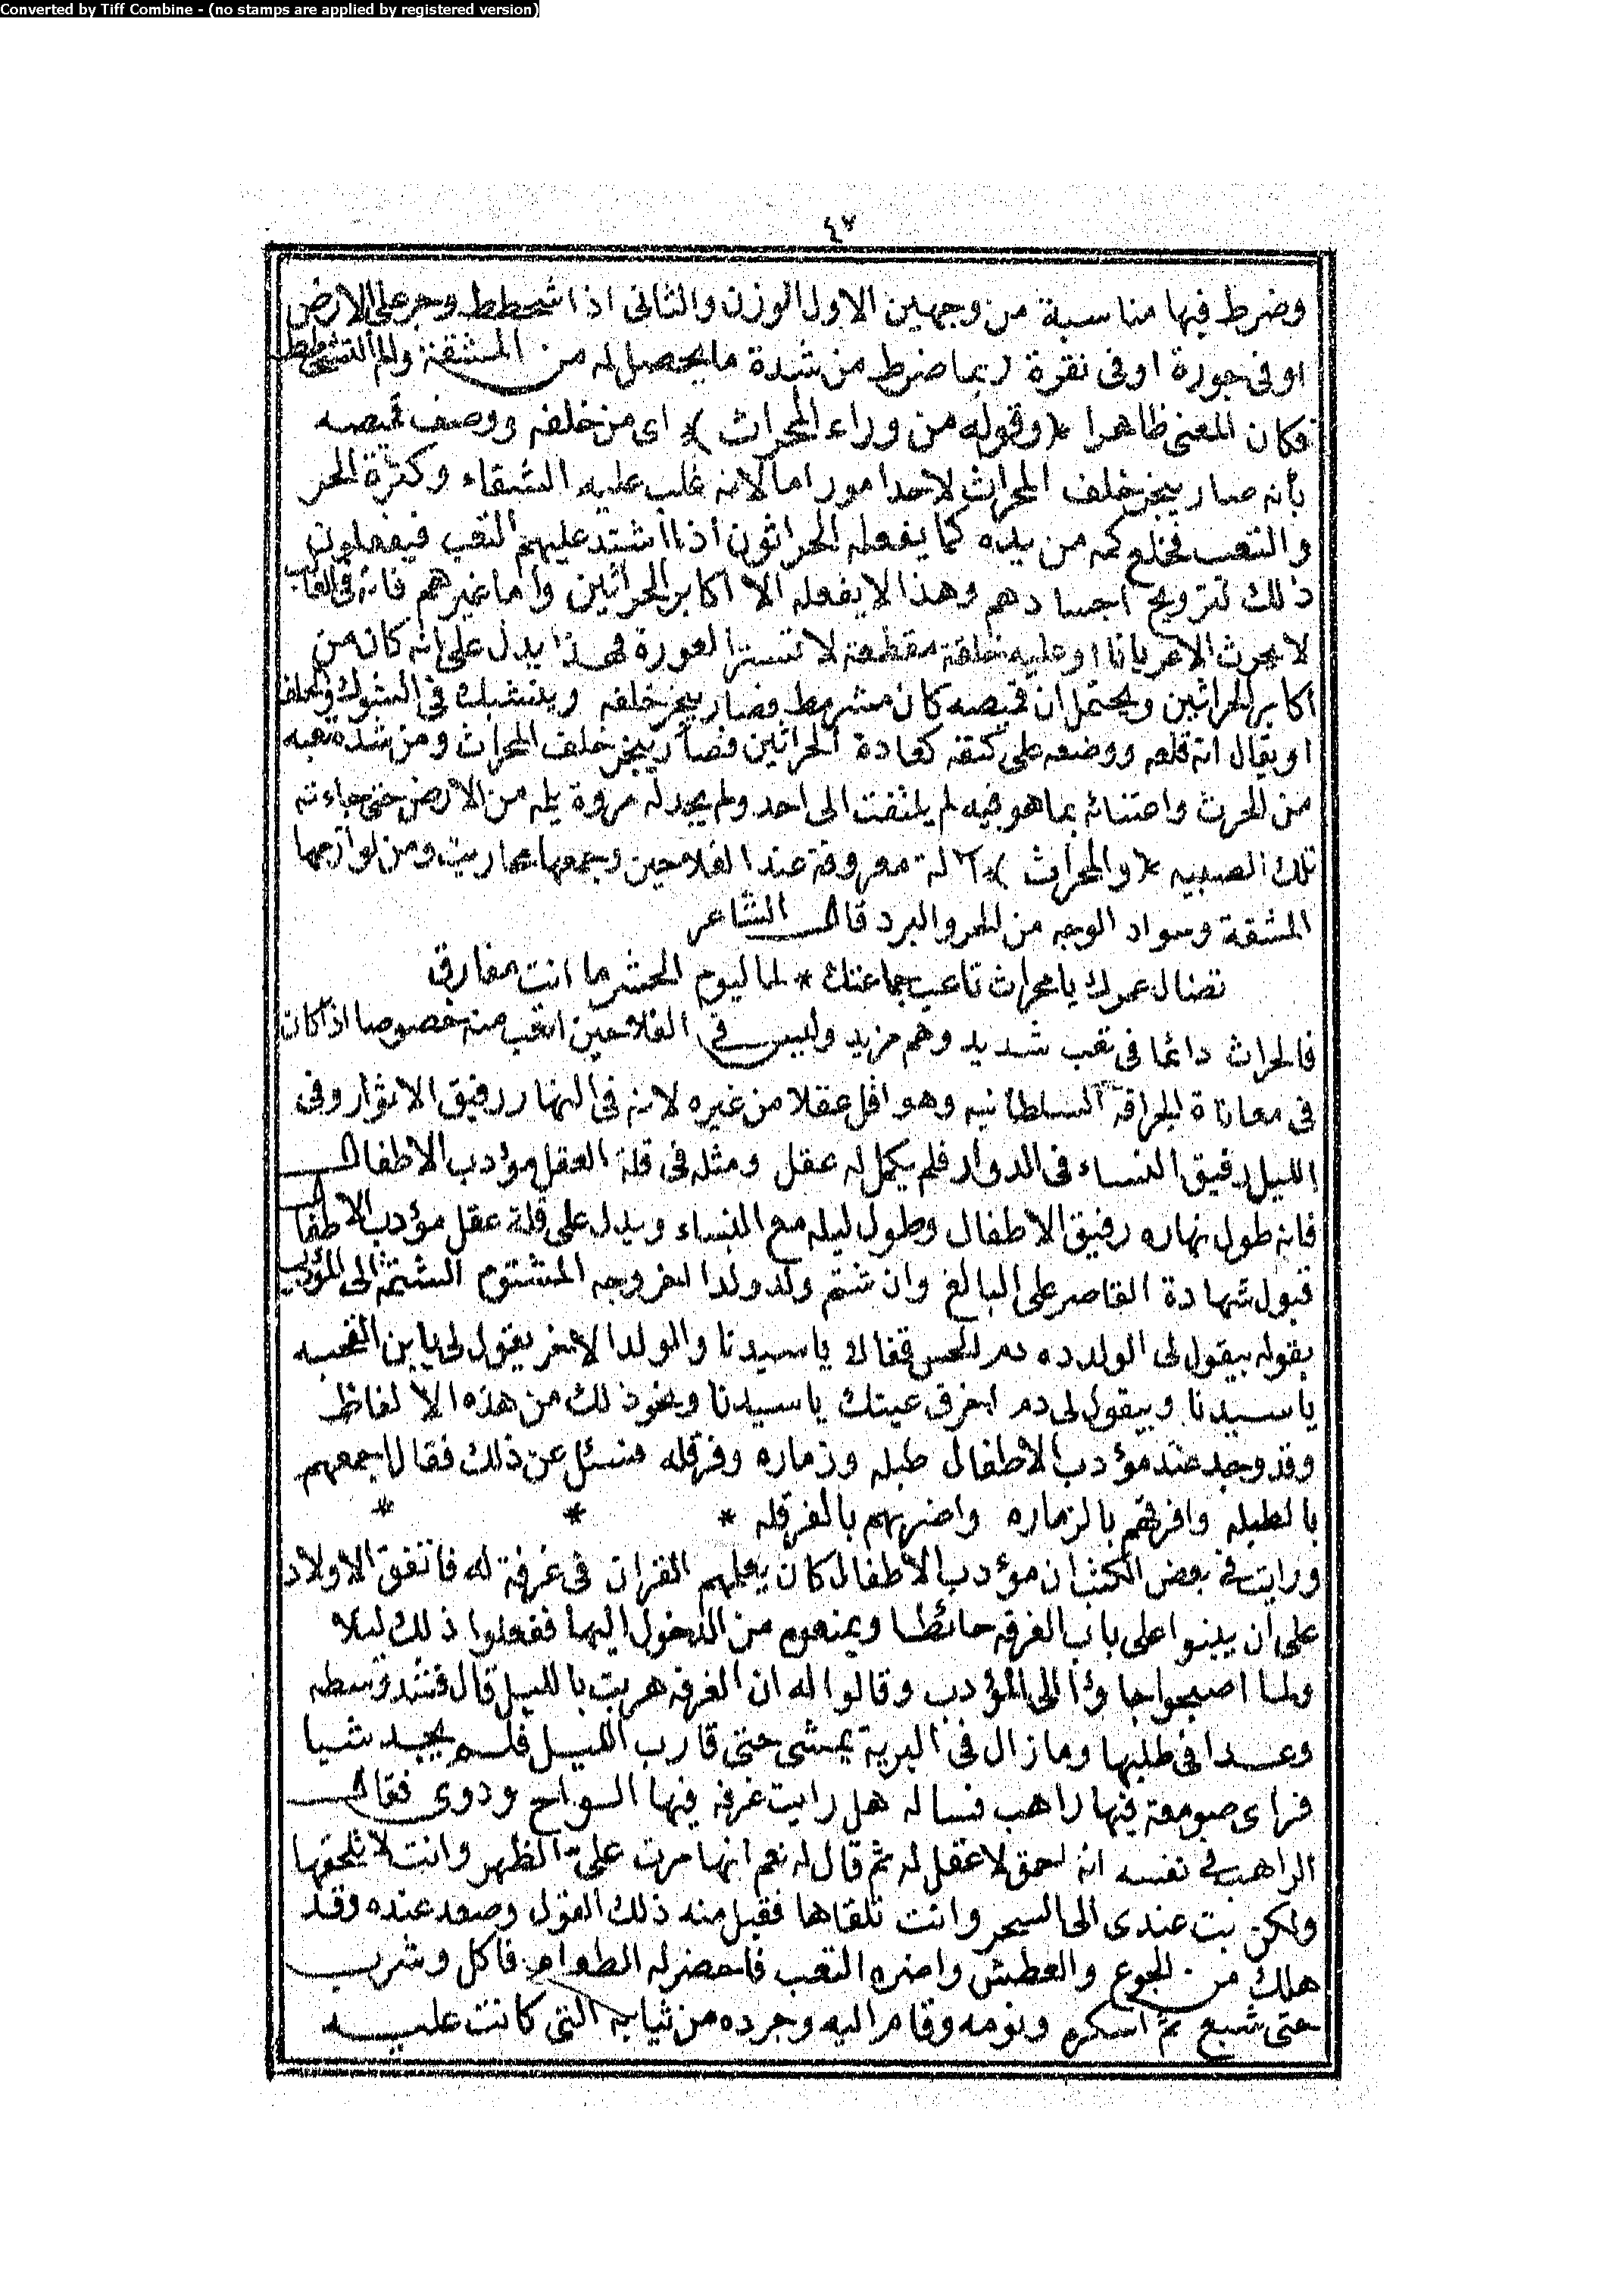 Converted by Tiff Combine - (no stamps are applied by registered version)
٤٧
وضرط فيها مناسبة من وجهين الاول الوزن والثانى اذا شحطط وجر على الارض
او فى جورة او فى نقرة ربما ضرط من شدة ما يحصل له من المشقة والم التشحطط
فكان المعنى ظاهرا * (وقوله من وراء المحراث) * اى من خلفه ووصف قميصه
بأنه صار ينجر خلف المحراث لاحد امور اما لانه غلب عليه الشقاء وكثرة الحر
والتعب فخلع كمه من يده كما يفعله الحراثون اذا اشتد عليهم التعب فيفعلون
ذلك لترويح اجسادهم وهذا لا يفعله الا اكابر الحراثين واما غيرهم فانه فى الغالب
لا يحرث الا عريانا او عليه خلقة مقطعة لا تستر العورة فهذا يدل على انه كان من
اكابر الحراثين ويحتمل ان قميصه كان مشرمط فصار ينجر خلفه ويتشبك فى الشوك والحلفا
او يقال انه قلعه ووضعه على كتفه كعادة الحراثين فصار ينجر خلف المحراث ومن شدة تعبه
من الحرث واعتنائه بما هو فيه لم يلتفت الى احد ولم يجد له مروة يلمه من الارض حتى جاءته
تلك الصبيه * (والمحراث) * آلة معروفة عند الفلاحين وجمعها محاريت ومن لوازمها
المشقة وسواد الوجه من الحر والبرد قال الشاعر
تضال عمرك يا محراث تاعب جماعتك * لما ليوم الحشر ما انت مفارق
فالحراث دائما فى تعب شديد وهم مزيد وليس فى الفلاحين اتعب منه خصوصا اذا كان
فى معاناة الجرافة السلطانيه وهو اقل عقلا من غيره لانه فى النهار رفيق الاثوار وفى
الليل رفيق النساء فى الدوار فلم يكمل له عقل ومثله فى قلة العقل مؤدب الاطفال
فانه طول نهاره رفيق الاطفال وطول ليله مع النساء ويدل على قلة عقل مؤدب الاطفال
قبول شهادة القاصر على البالغ وان شتم ولد ولدا اخر وجه المشتوم الشتمة الى المؤدب
بقوله بيقول لى الولد ده دم الحس قفاك يا سيدنا والولد الاخر يقول لى يا بن القحبه
يا سيدنا وبيقول لى دم اخرق عيتك يا سيدنا ونحو ذلك من هذه الالفاظ
وقد وجد عند مؤدب الاطفال طبله وزماره وفرقله فسئل عن ذلك فقال اجمعهم
بالطبله وافرقهم بالزماره واضربهم بالفرقله * * *
ورايت فى بعض الكتب ان مؤدب الاطفال كان يعلمهم القران فى غرفة له فاتفق الاولاد
على ان يبنوا على باب الغرفة حائطا ويمنعوه من الدخول اليها ففعلوا ذلك ليلا
ولما اصبحوا جاؤا الى المؤدب وقالوا له ان الغرفة هربت بالليل قال فشد وسطه
وعدا فى طلبها وما زال فى البرية يمشى حتى قارب الليل فلم يجد شيا
فراى صومعة فيها راهب فساله هل رايت غرفة فيها السواح ودوى فقال
الراهب فى نفسه انه احمق لا عقل له ثم قال له نعم انها مرت على الظهر وانت لا تلحقها
ولكن بت عندى الى السحر وانت تلقاها فقبل منه ذلك القول وصعد عنده وقد
هلك من الجوع والعطش واضره التعب فاحضر له الطعام فاكل وشرب
حتى شبع ثم اسكره ونومه وقام اليه وجرده من ثيابه التى كانت عليه